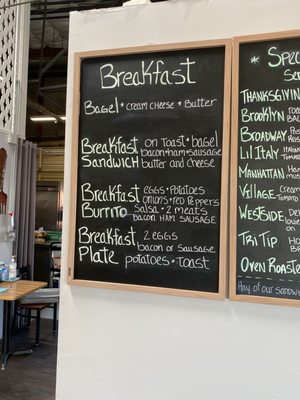 Breakfast
Bagel • cream cheese • Butter
Breakfast Sandwich
on Toast • bagel
bacon • ham • sausage
butter and cheese
Breakfast Burrito
eggs • potatoes
onions • red peppers
Salsa • 2 meats
bacon ham sausage
Breakfast Plate
2 eggs
bacon or sausage
potatoes • toast
* Spec
Thanksgiving
Brooklyn
Broadway
Lil Italy
Manhattan
Village
Westside
Tri Tip
Oven Roaste
Any of our sandw